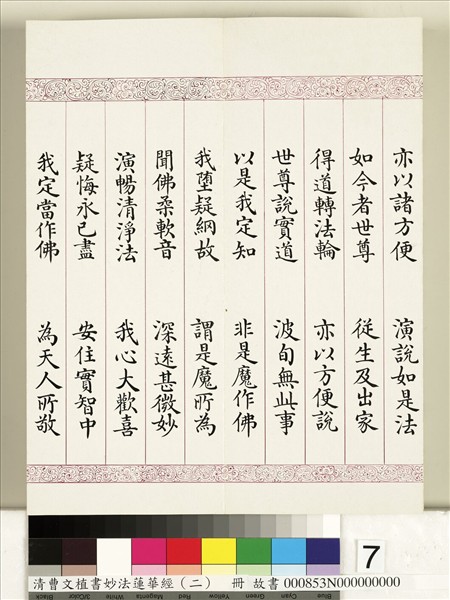 亦以諸方便 演說如是法
如今者世尊 從生及出家
得道轉法輪 亦以方便說
世尊說實道 波旬無此事
以是我定知 非是魔作佛
我墮疑網故 謂是魔所為
聞佛柔軟音 深遠甚微妙
演暢清淨法 我心大歡喜
疑悔永已盡 安住實智中
我定當作佛 為天人所敬
7
Blue Cyan Green Yellow Red Magenta White 3/Color Black
清曹文植書妙法蓮華經（二） 冊 故書 000853N000000000